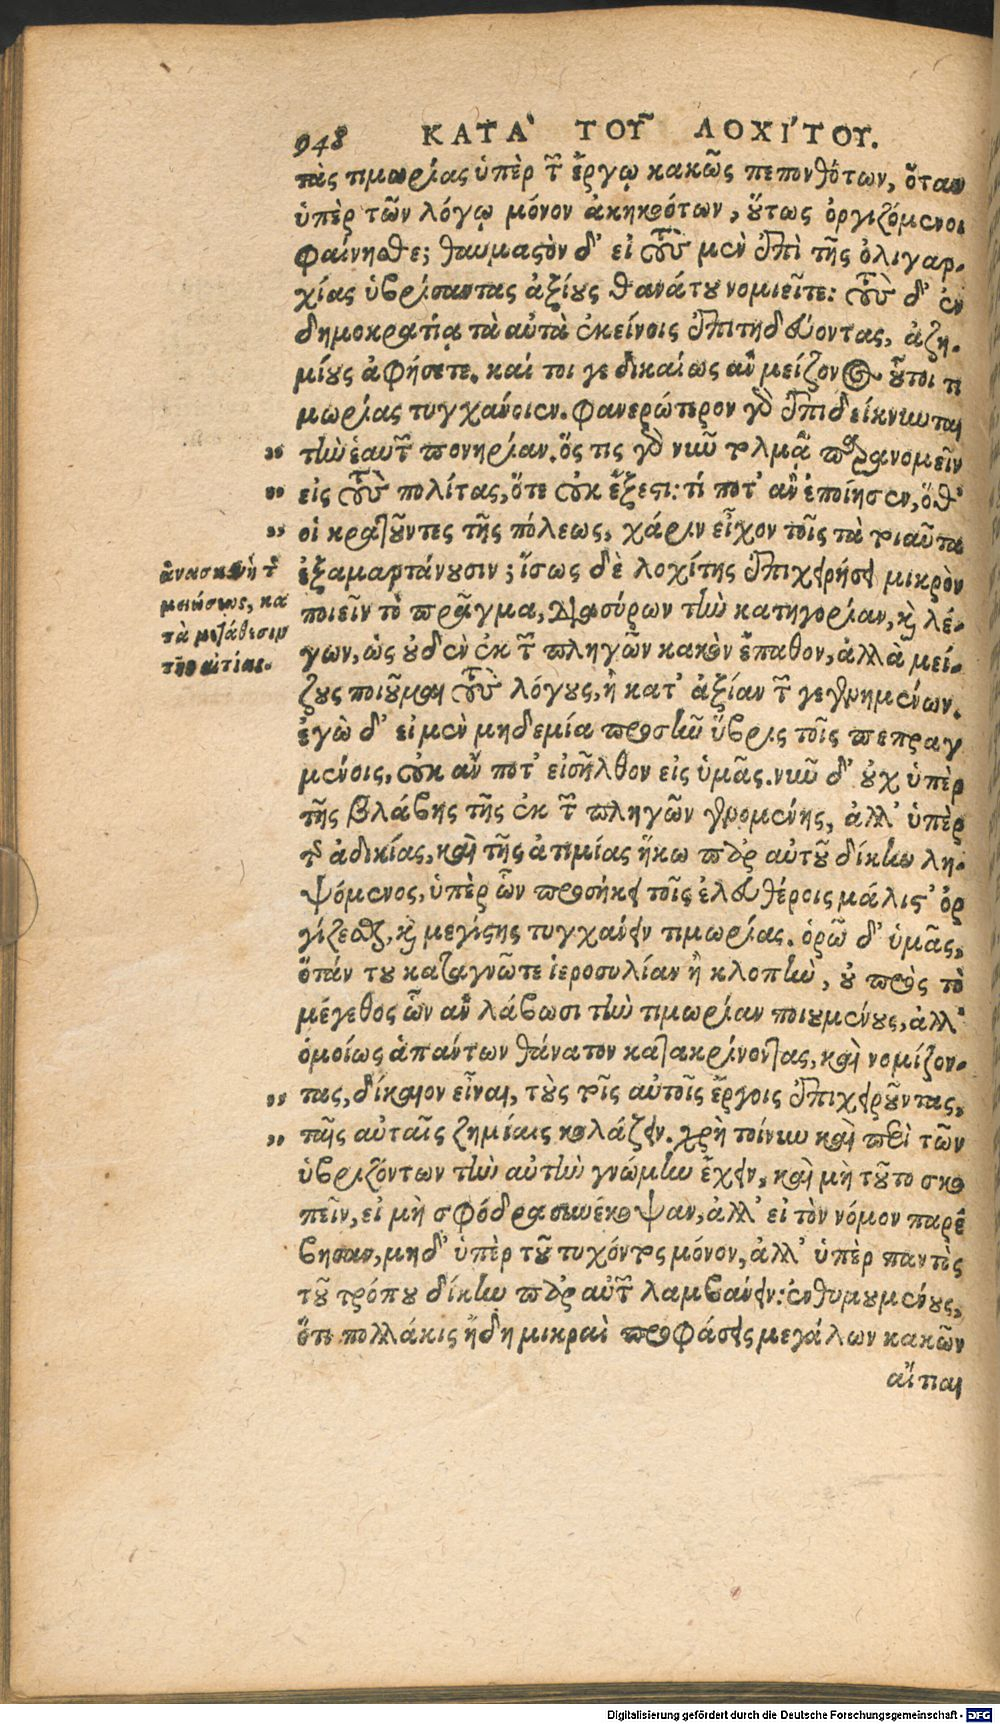 948 ΚΑΤΑ' ΤΟΥ͂ ΛΟΧΙ'ΤΟΥ.
τὰς τιμωρίας ὑπὲρ τῶν ἔργῳ κακῶς πεπονθότων, ὅταν
ὑπὲρ τῶν λόγῳ μόνον ἀκηκοότων, οὕτως ὀργιζόμενοι
φαίνησθε; θαυμαστὸν δ' εἰ τοὺς μὲν ἐπὶ τῆς ὀλιγαρ-
χίας ὑβρίσαντας ἀξίους θανάτου νομιεῖτε: τοὺς δ' ἐν
δημοκρατίᾳ τὰ αὐτὰ ἐκείνοις ἐπιτηδεύοντας, ἀζη-
μίους ἀφήσετε. καί τοι γε δικαίως ἂν μείζονος οὗτοι τι
μωρίας τυγχάνοιεν. φανερώτερον γὰρ ἐπιδείκνυνται
" τὴν ἑαυτῶν πονηρίαν. ὅς τις γὰρ νῦν τολμᾷ παρανομεῖν
" εἰς τοὺς πολίτας, ὅτε οὐκ ἔξεστι: τί ποτ' ἂν ἐποίησεν, ὅθ'
" οἱ κρατοῦντες τῆς πόλεως, χάριν εἶχον τοῖς τὰ τοιαῦτα
ἐξαμαρτάνουσιν; ἴσως δὲ λοχίτης ἐπιχειρήσει μικρὸν
ποιεῖν τὸ πρᾶγμα, διασύρων τὴν κατηγορίαν, καὶ λέ-
γων, ὡς οὐδὲν ἐκ τῶν πληγῶν κακὸν ἔπαθον, ἀλλὰ μεί-
ζους ποιοῦμαι τοὺς λόγους, ἢ κατ' ἀξίαν τῶν γεγενημένων.
ἐγὼ δ' εἰ μὲν μηδεμία προσῆν ὕβρις τοῖς πεπραγ
μένοις, οὐκ ἄν ποτ' εἰσῆλθον εἰς ὑμᾶς. νῦν δ' οὐχ ὑπὲρ
τῆς βλάβης τῆς ἐκ τῶν πληγῶν γενομένης, ἀλλ' ὑπὲρ
τῆς ἀδικίας, καὶ τῆς ἀτιμίας ἥκω παρ αὐτοῦ δίκην λη-
ψόμενος, ὑπὲρ ὧν προσήκει τοῖς ἐλευθέροις μάλιστ' ὀρ
γίζεσθαι, καὶ μεγίστης τυγχάνειν τιμωρίας. ὁρῶ δ' ὑμᾶς,
ὅτάν του καταγνῶτε ἱεροσυλίαν ἢ κλοπὴν, οὐ πρὸς τὸ
μέγεθος ὧν ἂν λάβωσι τὴν τιμωρίαν ποιουμένους, ἀλλ'
ὁμοίως ἁπάντων θάνατον κατακρίνοντας, καὶ νομίζον-
" τας, δίκαιον εἶναι, τοὺς τοῖς αὐτοῖς ἔργοις ἐπιχειροῦντας,
" ταῖς αὐταῖς ζημίαις κολάζειν. χρὴ τοίνυν καὶ περὶ τῶν
ὑβριζόντων τὴν αὐτὴν γνώμην ἔχειν, καὶ μὴ τοῦτο σκο
πεῖν, εἰ μὴ σφόδρα συνέκοψαν, ἀλλ' εἰ τὸν νόμον παρέ
βησαν, μηδ' ὑπὲρ τοῦ τυχόντος μόνον, ἀλλ' ὑπὲρ παντὸς
τοῦ τρόπου δίκην παρ αὐτῶν λαμβάνειν: ἐνθυμουμένους,
ὅτι πολλάκις ἤδη μικραὶ προφάσεις μεγάλων κακῶν
αἴτιαι
ἀνασκευὴ τῆς
μειώσεως, κα
τὰ μετάθεσιν
τῆς αἰτίας.
Digitalisierung gefördert durch die Deutsche Forschungsgemeinschaft - DFG